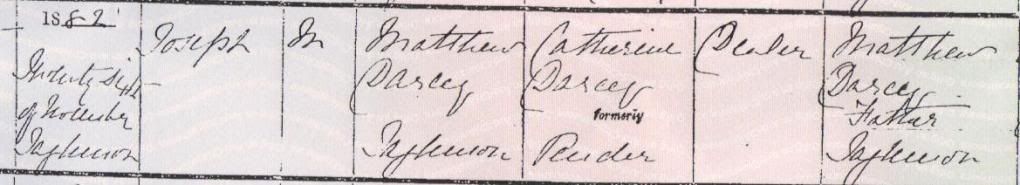 1882
Twenty Sixth
of November
Taghmon
Joseph
M
Matthew
Darcey
Taghmon
Catherine
Darcey
formerly
Pender
Dealer
Matthew
Darcey
Father
Taghmon